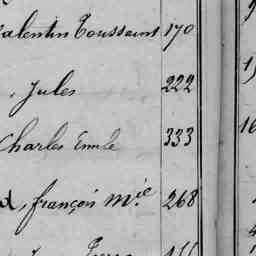 Valentin Toussaint 170
, Jules 222
Charles Emile 333
, françois Mie 268